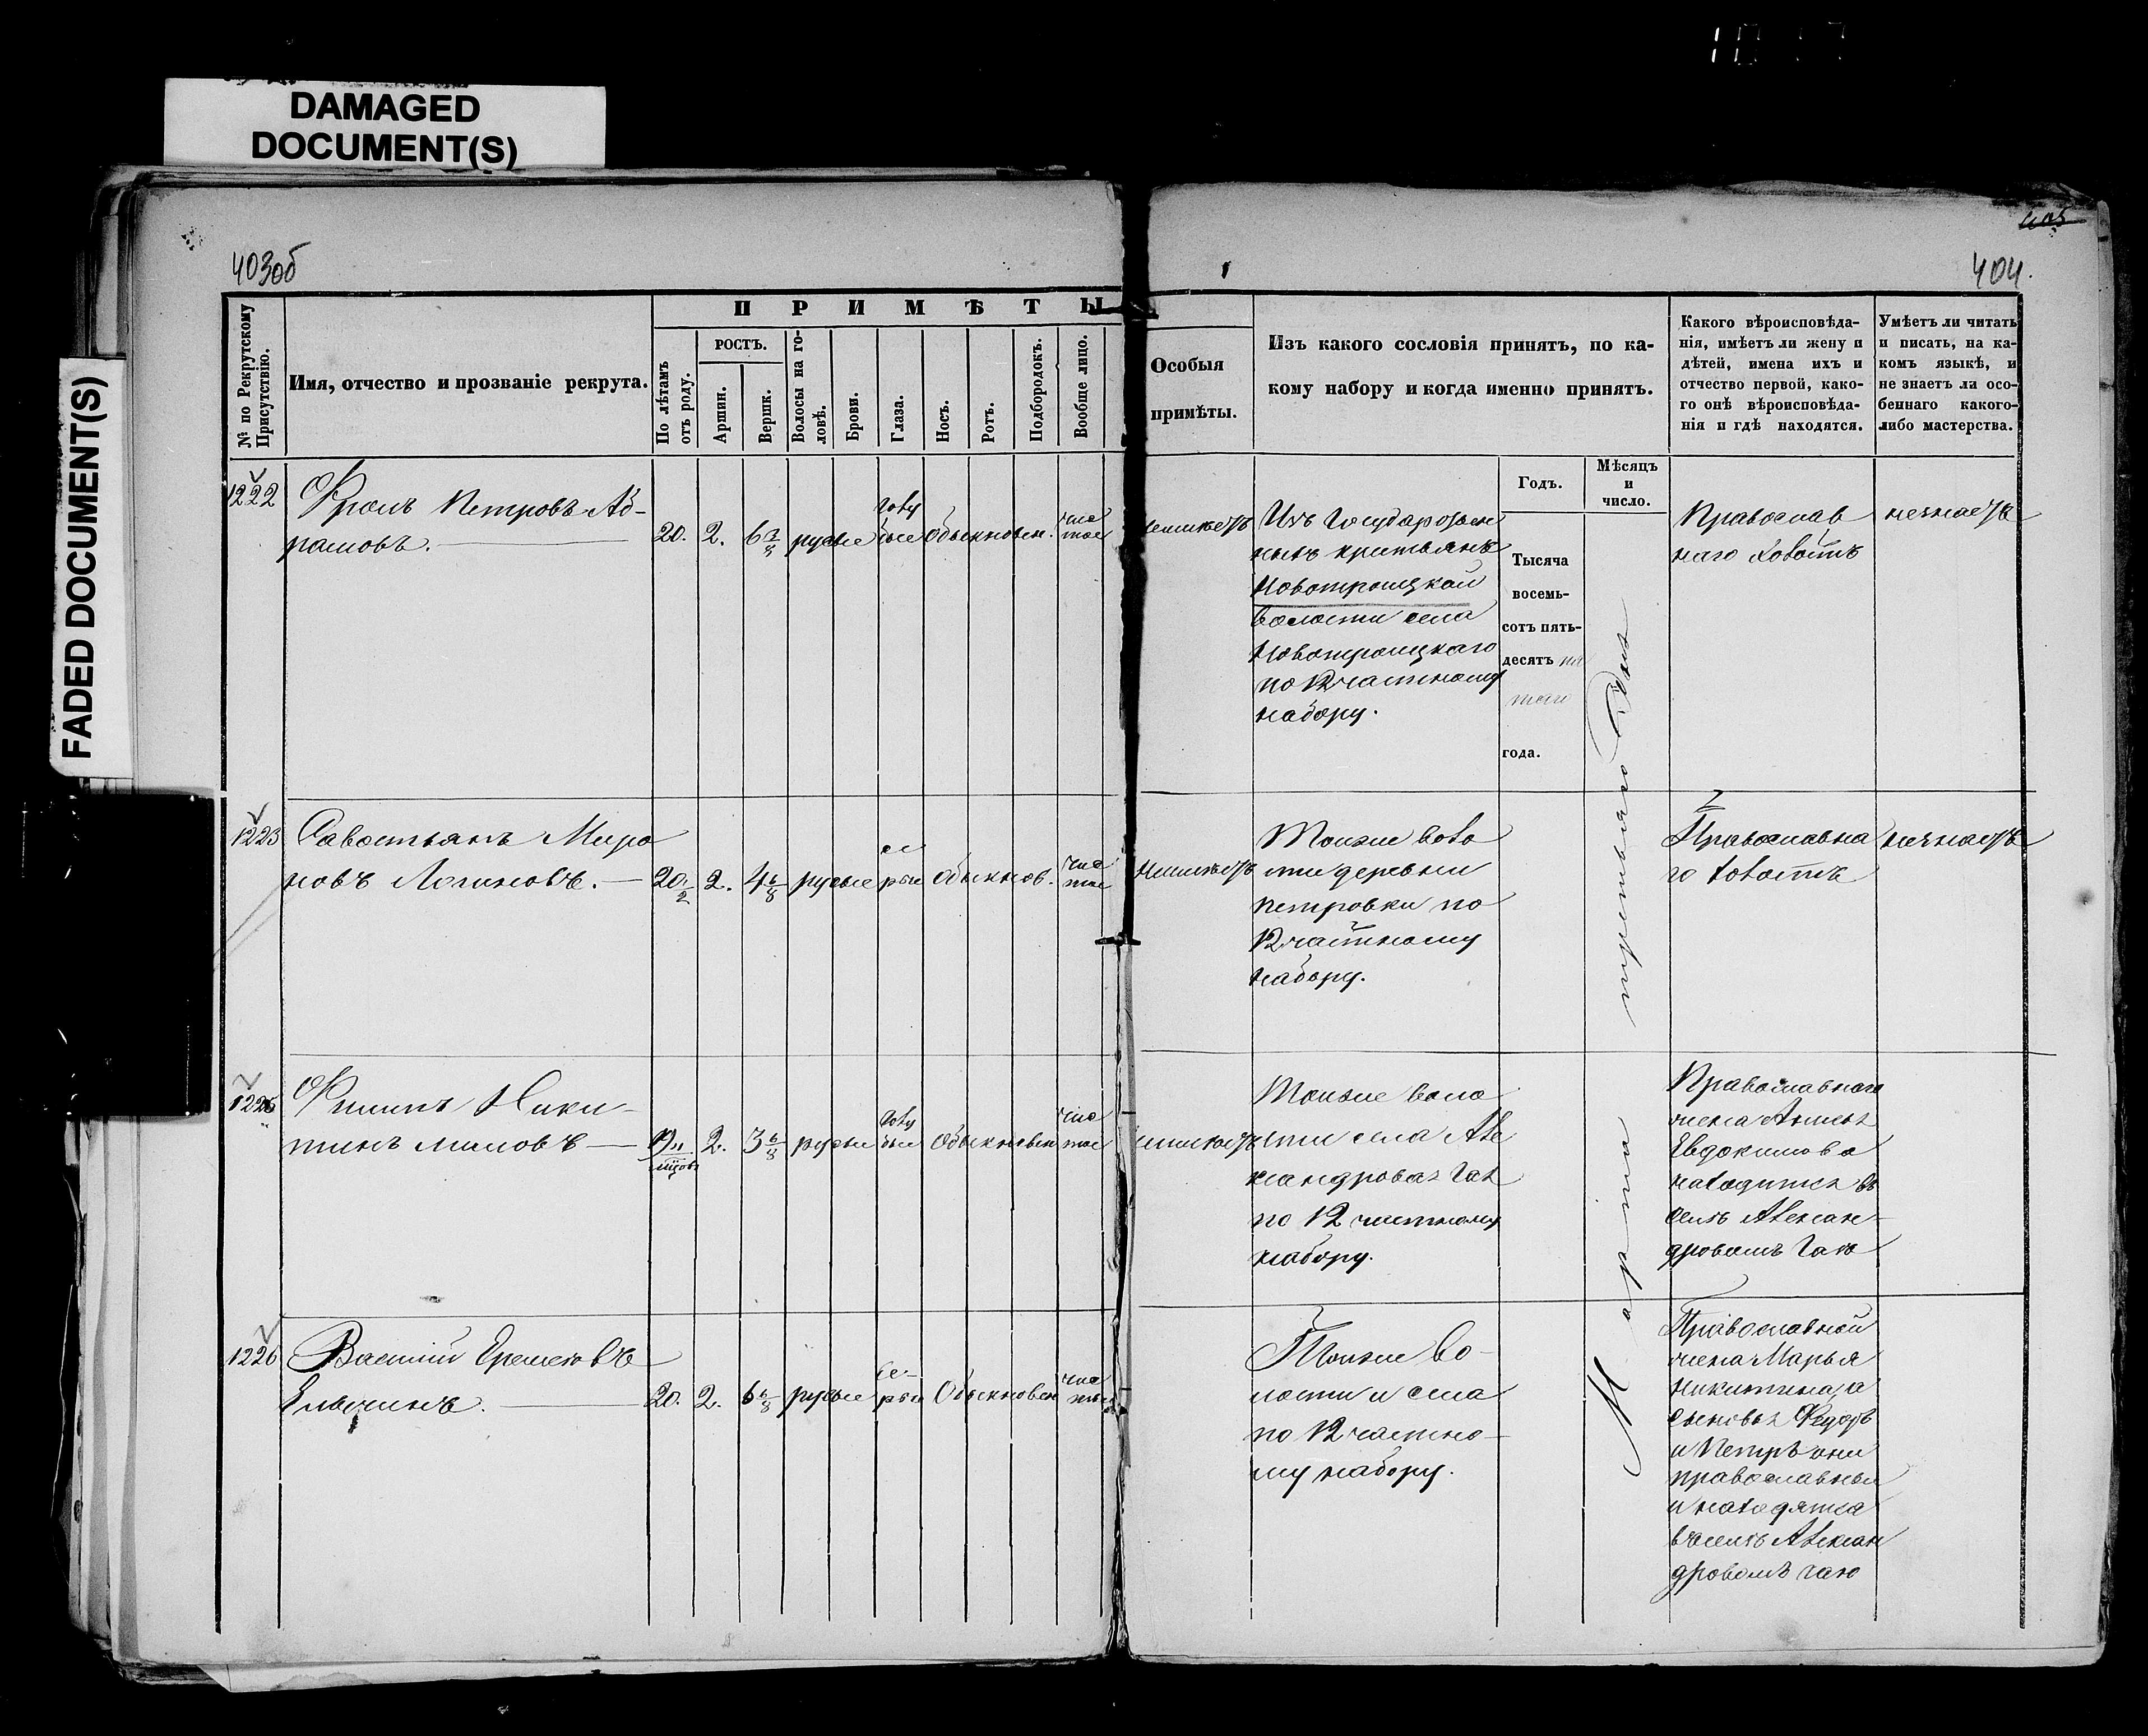 DAMAGED
DOCUMENT(S)
FADED DOCUMENT(S)
403об
404.
405
№ по Рекрутскому
Присутствію.
Имя, отчество и прозваніе рекрута.
ПРИМѢТЫ
По лѣтамъ
отъ роду.
РОСТЪ.
Аршин.
Вершк.
Волосы на го-
ловѣ.
Брови.
Глаза.
Носъ.
Ротъ.
Подбородокъ.
Вообще лицо.
Особыя
примѣты.
Изъ какого сословія принятъ, по ка-
кому набору и когда именно принятъ.
Годъ.
Мѣсяцъ
и
число.
Какого вѣроисповѣда-
нія, имѣетъ ли жену и
дѣтей, имена ихъ и
отчество первой, како-
го онѣ вѣроисповѣда-
нія и гдѣ находятся.
Умѣетъ ли читать
и писать, на ка-
комъ языкѣ, и
не знаетъ ли осо-
беннаго какого-
либо мастерства.
1222
Фролъ Петровъ Аб-
рамовъ.
20.
2.
6 7/8
русые
голу
бые
обыкновен.
чис
тое
неимѣетъ
Изъ Государствен
ныхъ крестьянъ
Новотроицкой
волости села
Новотроицкаго
по 12 частному
набору.
Тысяча
восемь-
сотъ пять-
десятъ пя
таго
года.
Марта третьяго дня
Православ
наго холостъ
незнаетъ
1223
Савостьянъ Миро
новъ Логиновъ.
20 1/2
2.
4 6/8
русые
се
рые
Обыкнов.
чис
тое
Неимѣетъ
Тойже воло
сти деревни
Петровки по
12 частному
набору.
Православна
го холостъ
незнаетъ
1225
Филипъ Ники-
тинъ
2.
3 6/8
русые
голу
бые
Обыкновен
чис
тое
неимѣетъ
Тойже воло
сти села Але
ксандровал Гая
по 12 частному
набору.
Православнаго
жена Анисья
Евдокимова
находится въ
селѣ Алексан-
дровомъ Гаю
1226
Василій Еремеевъ
20.
2.
6 6/8
русые
се-
рые
Обыкновен
чис
тое
Тойже во-
лости и села
по 12 частно-
му набору.
Православной
жена Марья
Никитина, а
сыновья Федоръ
и Петръ они
православные
и находятся
въ селѣ Алексан
дровомъ гаю